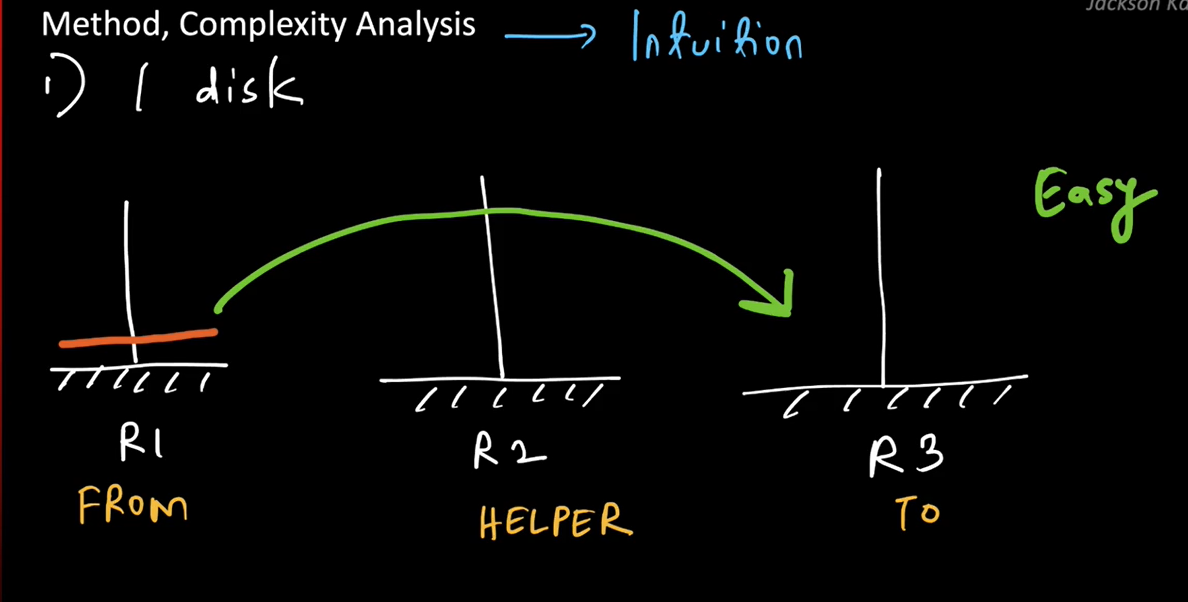 Jackson Ka
Method, Complexity Analysis → Intuition
1) 1 disk
Easy
R1 R2 R3
FROM HELPER TO